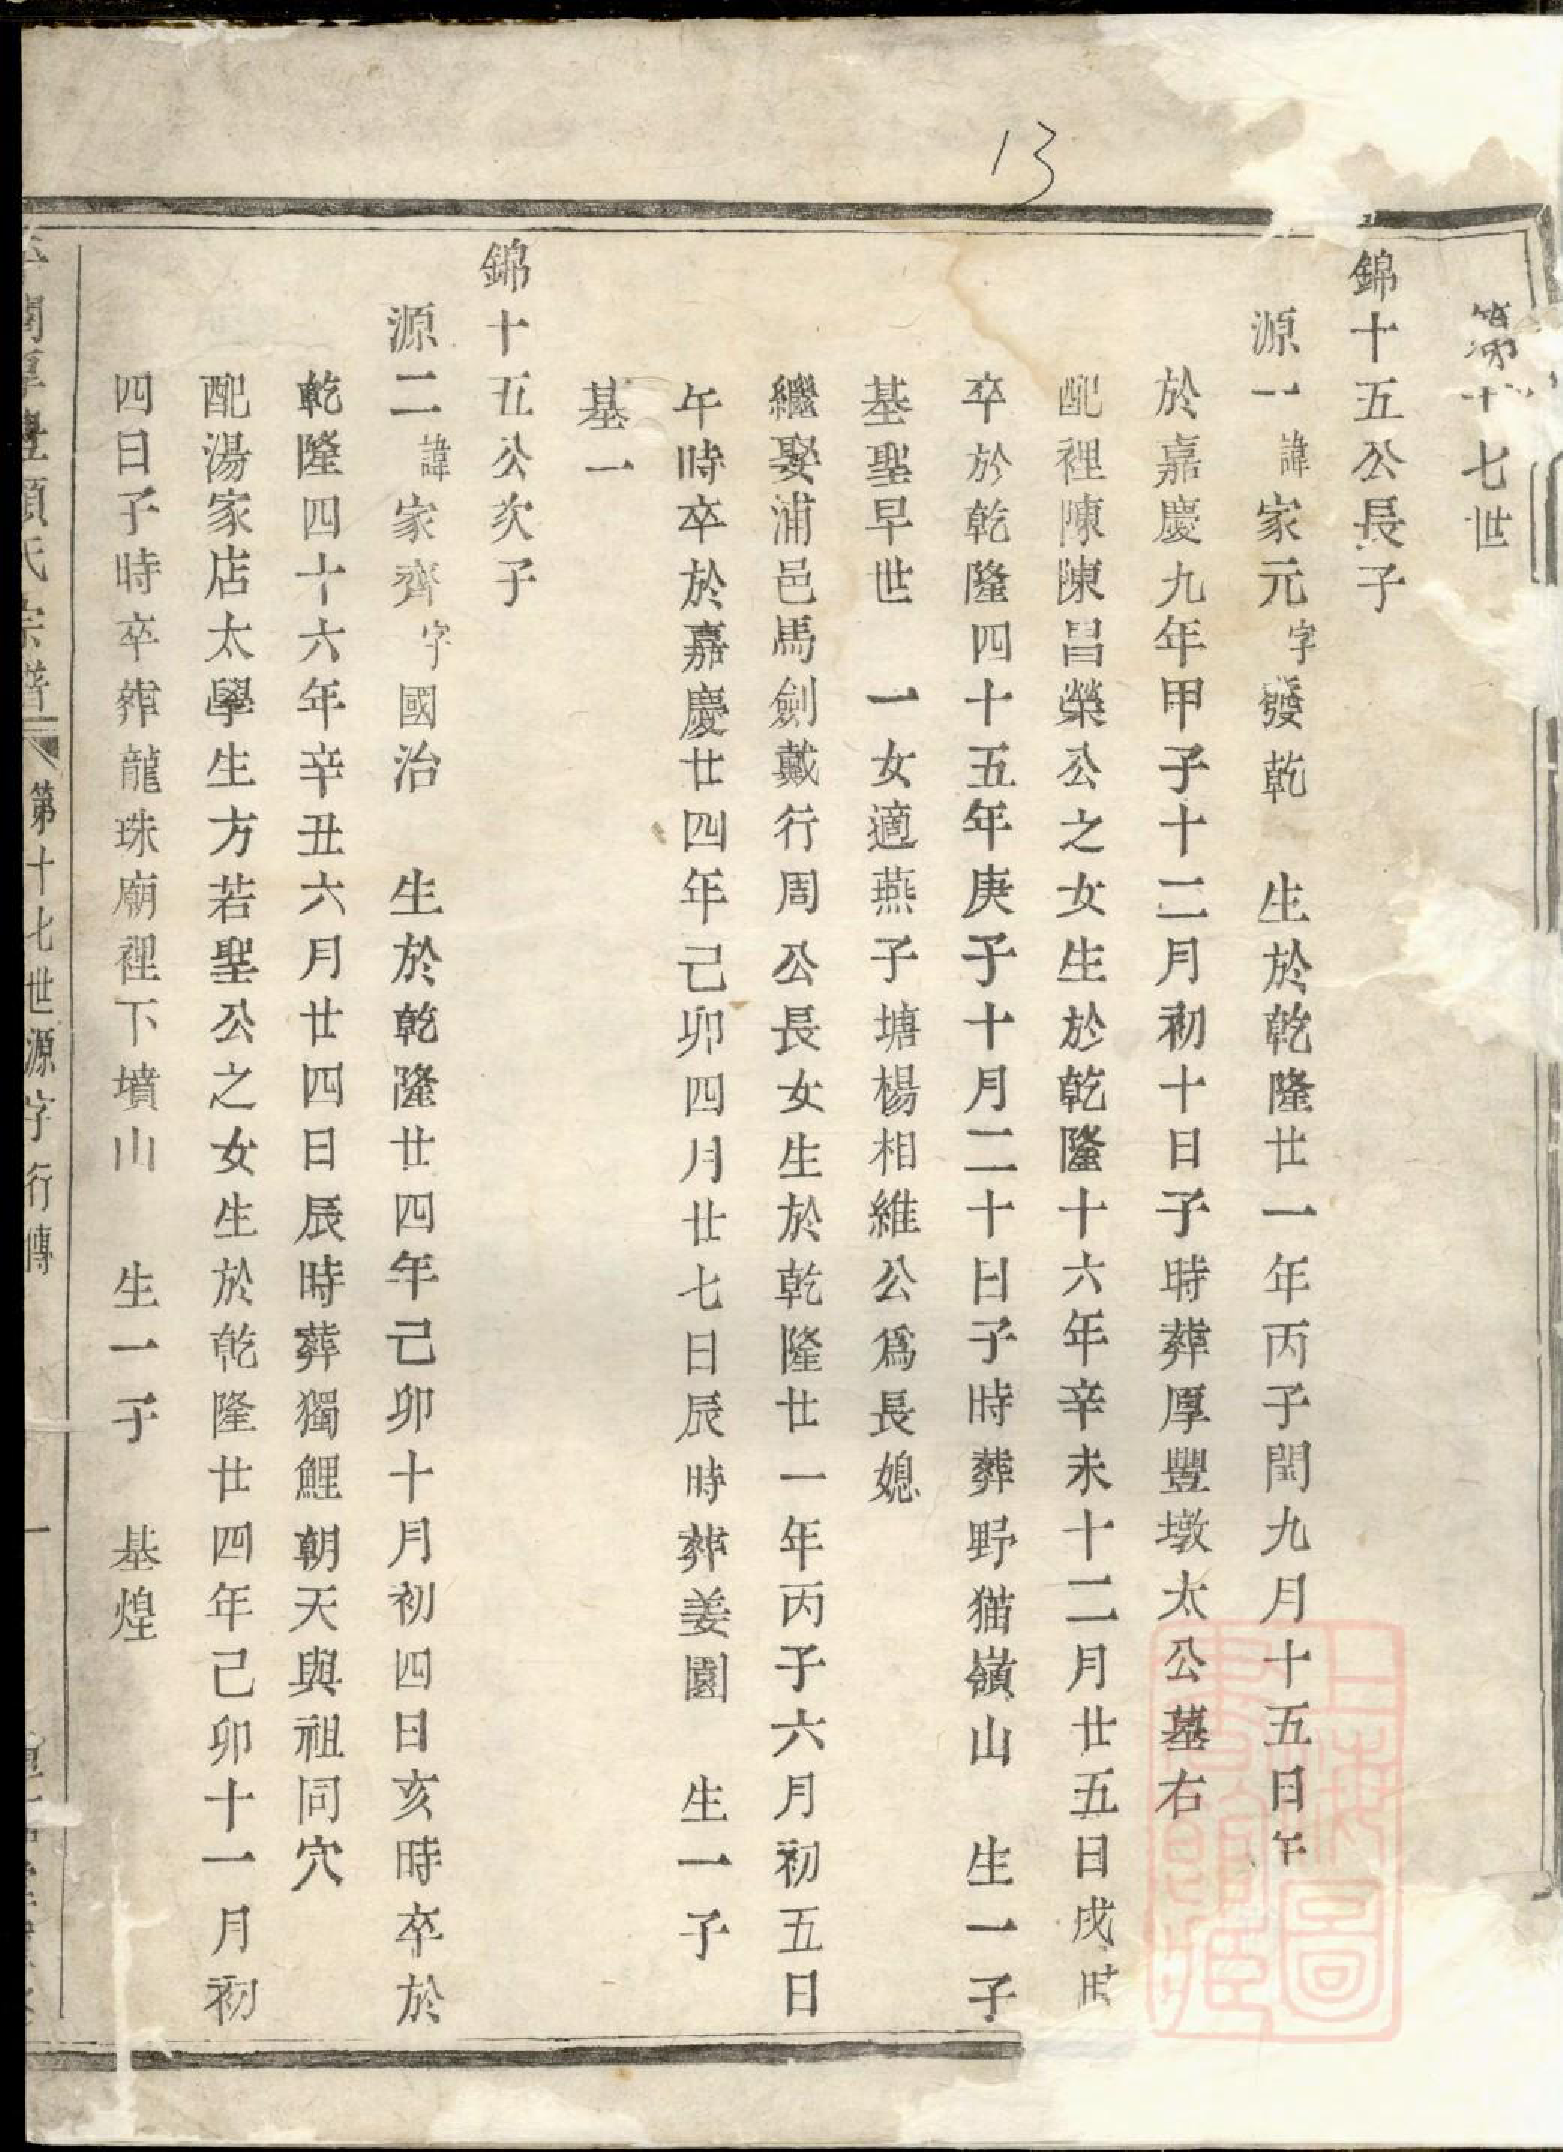 13
第十七世
錦十五公長子
源一諱家元字發乾　生於乾隆廿一年丙子閏九月十五日午
於嘉慶九年甲子十二月初十日子時葬厚豐墩太公墓右
配裡陳陳昌榮公之女生於乾隆十六年辛未十二月廿五日戌時
卒於乾隆四十五年庚子十月二十日子時葬野猫嶺山　生一子
基聖早世　一女適燕子塘楊相維公爲長媳
繼娶浦邑馬劍戴行周公長女生於乾隆廿一年丙子六月初五日
午時卒於嘉慶廿四年己卯四月廿七日辰時葬姜園　生一子
基一
錦十五公次子
源二諱家齊字國治　生於乾隆廿四年己卯十月初四日亥時卒於
乾隆四十六年辛丑六月廿四日辰時葬獨鯉朝天與祖同穴
配湯家店太學生方若聖公之女生於乾隆廿四年己卯十一月初
四日子時卒葬龍珠廟裡下墳山　生一子　基煌
氏宗譜　第十七世源字行傳　一
上海圖書館藏